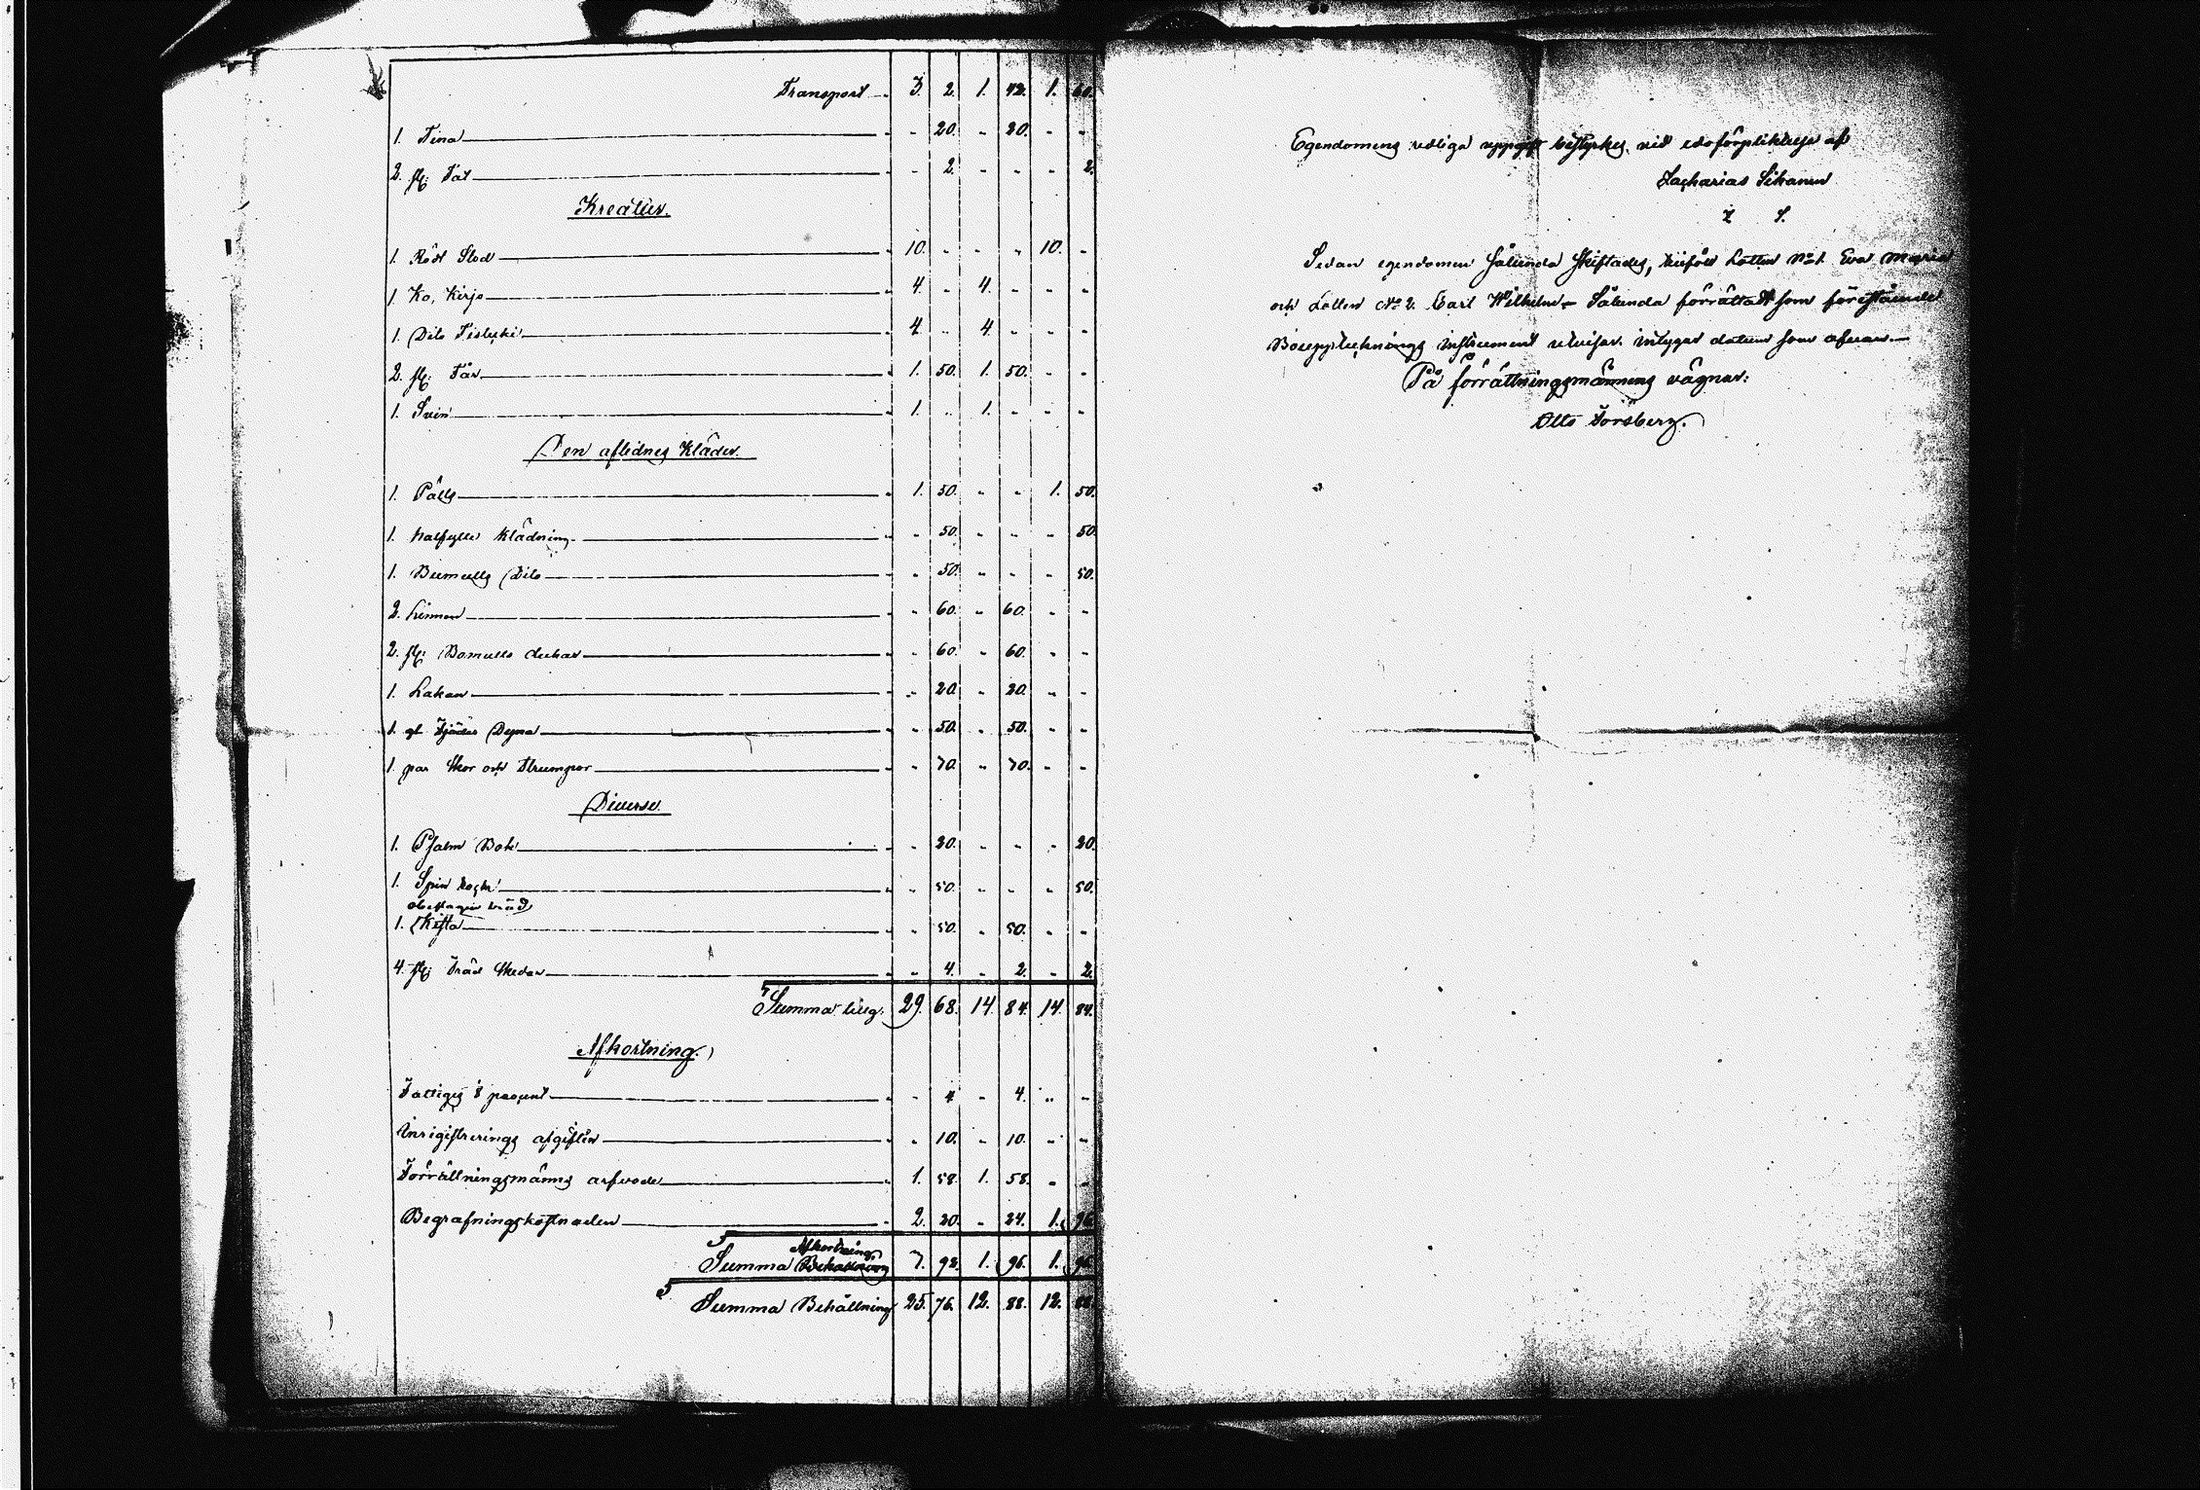 Transport 3. 2. 1. 42. 1. 60.
1. Tina - 20. - 20. - -
2. st: Fat - 2. - - - 2.
Kreatur.
1. Rödt Stod 10. - - - 10. -
1. Ko, Kirjo 4. - 4. - - -
1. Dito 4. - 4. - - -
2. st: Får 1. 50. 1. 50. - -
1. Svin 1. - 1. - - -
Den aflidnes Kläder.
1. Pälls 1. 50. - - 1. 50.
1. halfylle Klädning - 50. - - - 50.
1. Bumulls Dito - 50. - - - 50.
2. Linnen - 60. - 60. - -
2. st: Bomulls dukar - 60. - 60. - -
1. Lakan - 20. - 20. - -
1. gl Fjäder Dyna - 50. - 50. - -
1. par Skor och Strumpor - 70. - 70. - -
Diverse.
1. Psalm Bok - 20. - - - 20.
1. Spin - 50. - - - 50.
1. Kista - 50. - 50. - -
4. st: Träd Skedar - 4. - 2. - 2.
Summa 29. 68. 14. 84. 14. 84.
Afkortning.
Fattigs procent - 4 - 4. - -
Inrigistrerings afgiften - 10. - 10. - -
Förrättningsmänns arfvode 1. 58. 1. 58. - -
Begrafningskostnaden 2. 20. - 24. 1. 96.
Afkortning.
Summa 7. 92. 1. 96. 1. 96.
Summa Behållning 25. 76. 12. 88. 12. 88.
Egendomens redliga uppgift bestyrkes, vid edsförpliktelse af
Zacharias Sikanen
Z S.
Sedan egendomen sålunda skiftades, tillföll Lotten No 1. Eva Maria
och Lotten No 2. Carl Wilhelm - Sålunda förrättadt som förestående
Bouppteknings instrument utvisar. intygar datum som ofvan.—
På förrättningsmännens vägnar:
Otto Forsberg.